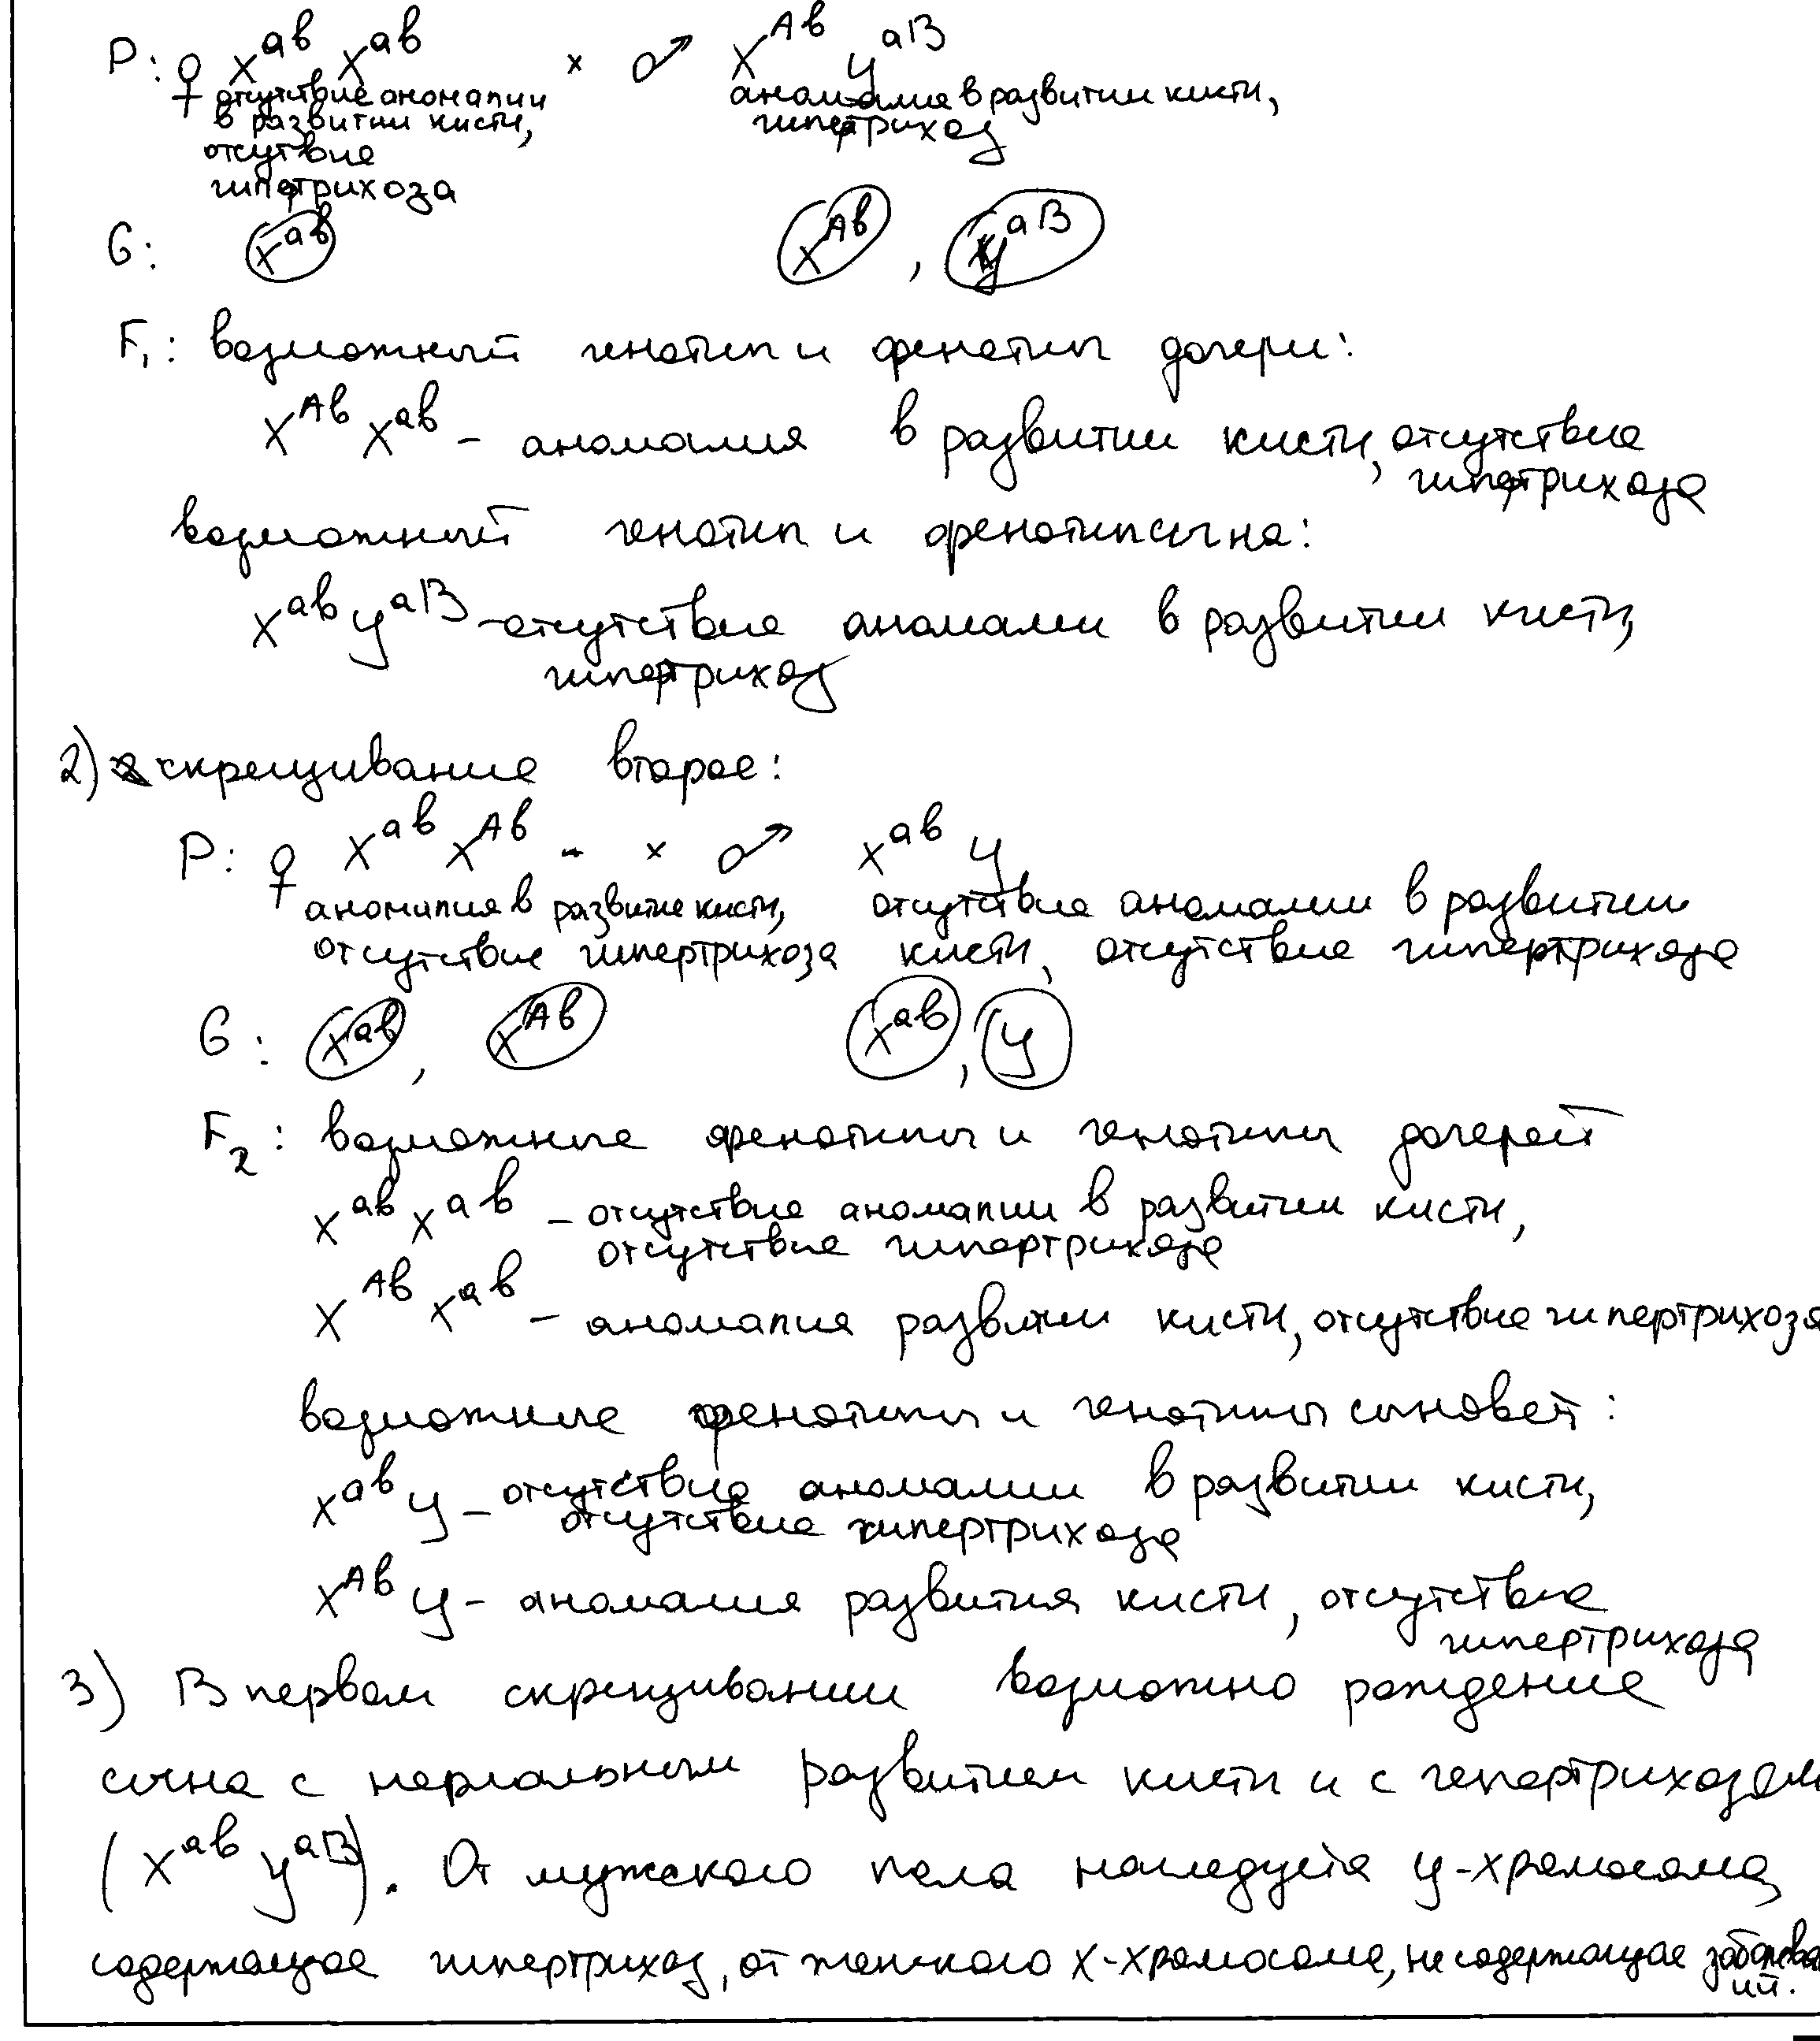 P: ♀ X^ав X^ав × ♂ X^Ав У^аВ
отсутствие аномалии аномалия в развитии кисти,
в развитии кисти, гипертрихоз
отсутвие
гипертрихоза
G: X^ав X^Ав , У^аВ
F₁: возможный генотип и фенотип дочери:
X^Ав X^ав – аномалия в развитии кисти, отсутствие
гипертрихоза
возможный генотип и фенотип сына:
X^ав У^аВ – отсутствие аномалии в развитии кисти,
гипертрихоз
2) скрещивание второе:
P: ♀ X^ав X^Ав × ♂ X^ав У
аномалия в развитие кисти, отсутствие аномалии в развитии
отсутствие гипертрихоза кисти, отсутствие гипертрихоза
G: X^ав , X^Ав X^ав , У
F₂: возможные фенотипы и генотипы дочерей
X^ав X^ав – отсутствие аномалии в развитии кисти,
отсутствие гипертрихоза
X^Ав X^ав – аномалия развитии кисти, отсутствие гипертрихоза
возможные фенотипы и генотипы сыновей:
X^ав У – отсутствие аномалии в развитии кисти,
отсутствие гипертрихоза
X^Ав У – аномалия развития кисти, отсутствие
гипертрихоза
3) В первом скрещивании возможно рождение
сына с нормальным развитием кисти и с гепертрихозом
(X^ав У^аВ). От мужского пола наследуется У-хромосома,
содержащое гипертрихоз, от женского X-хромосома, не содержащое